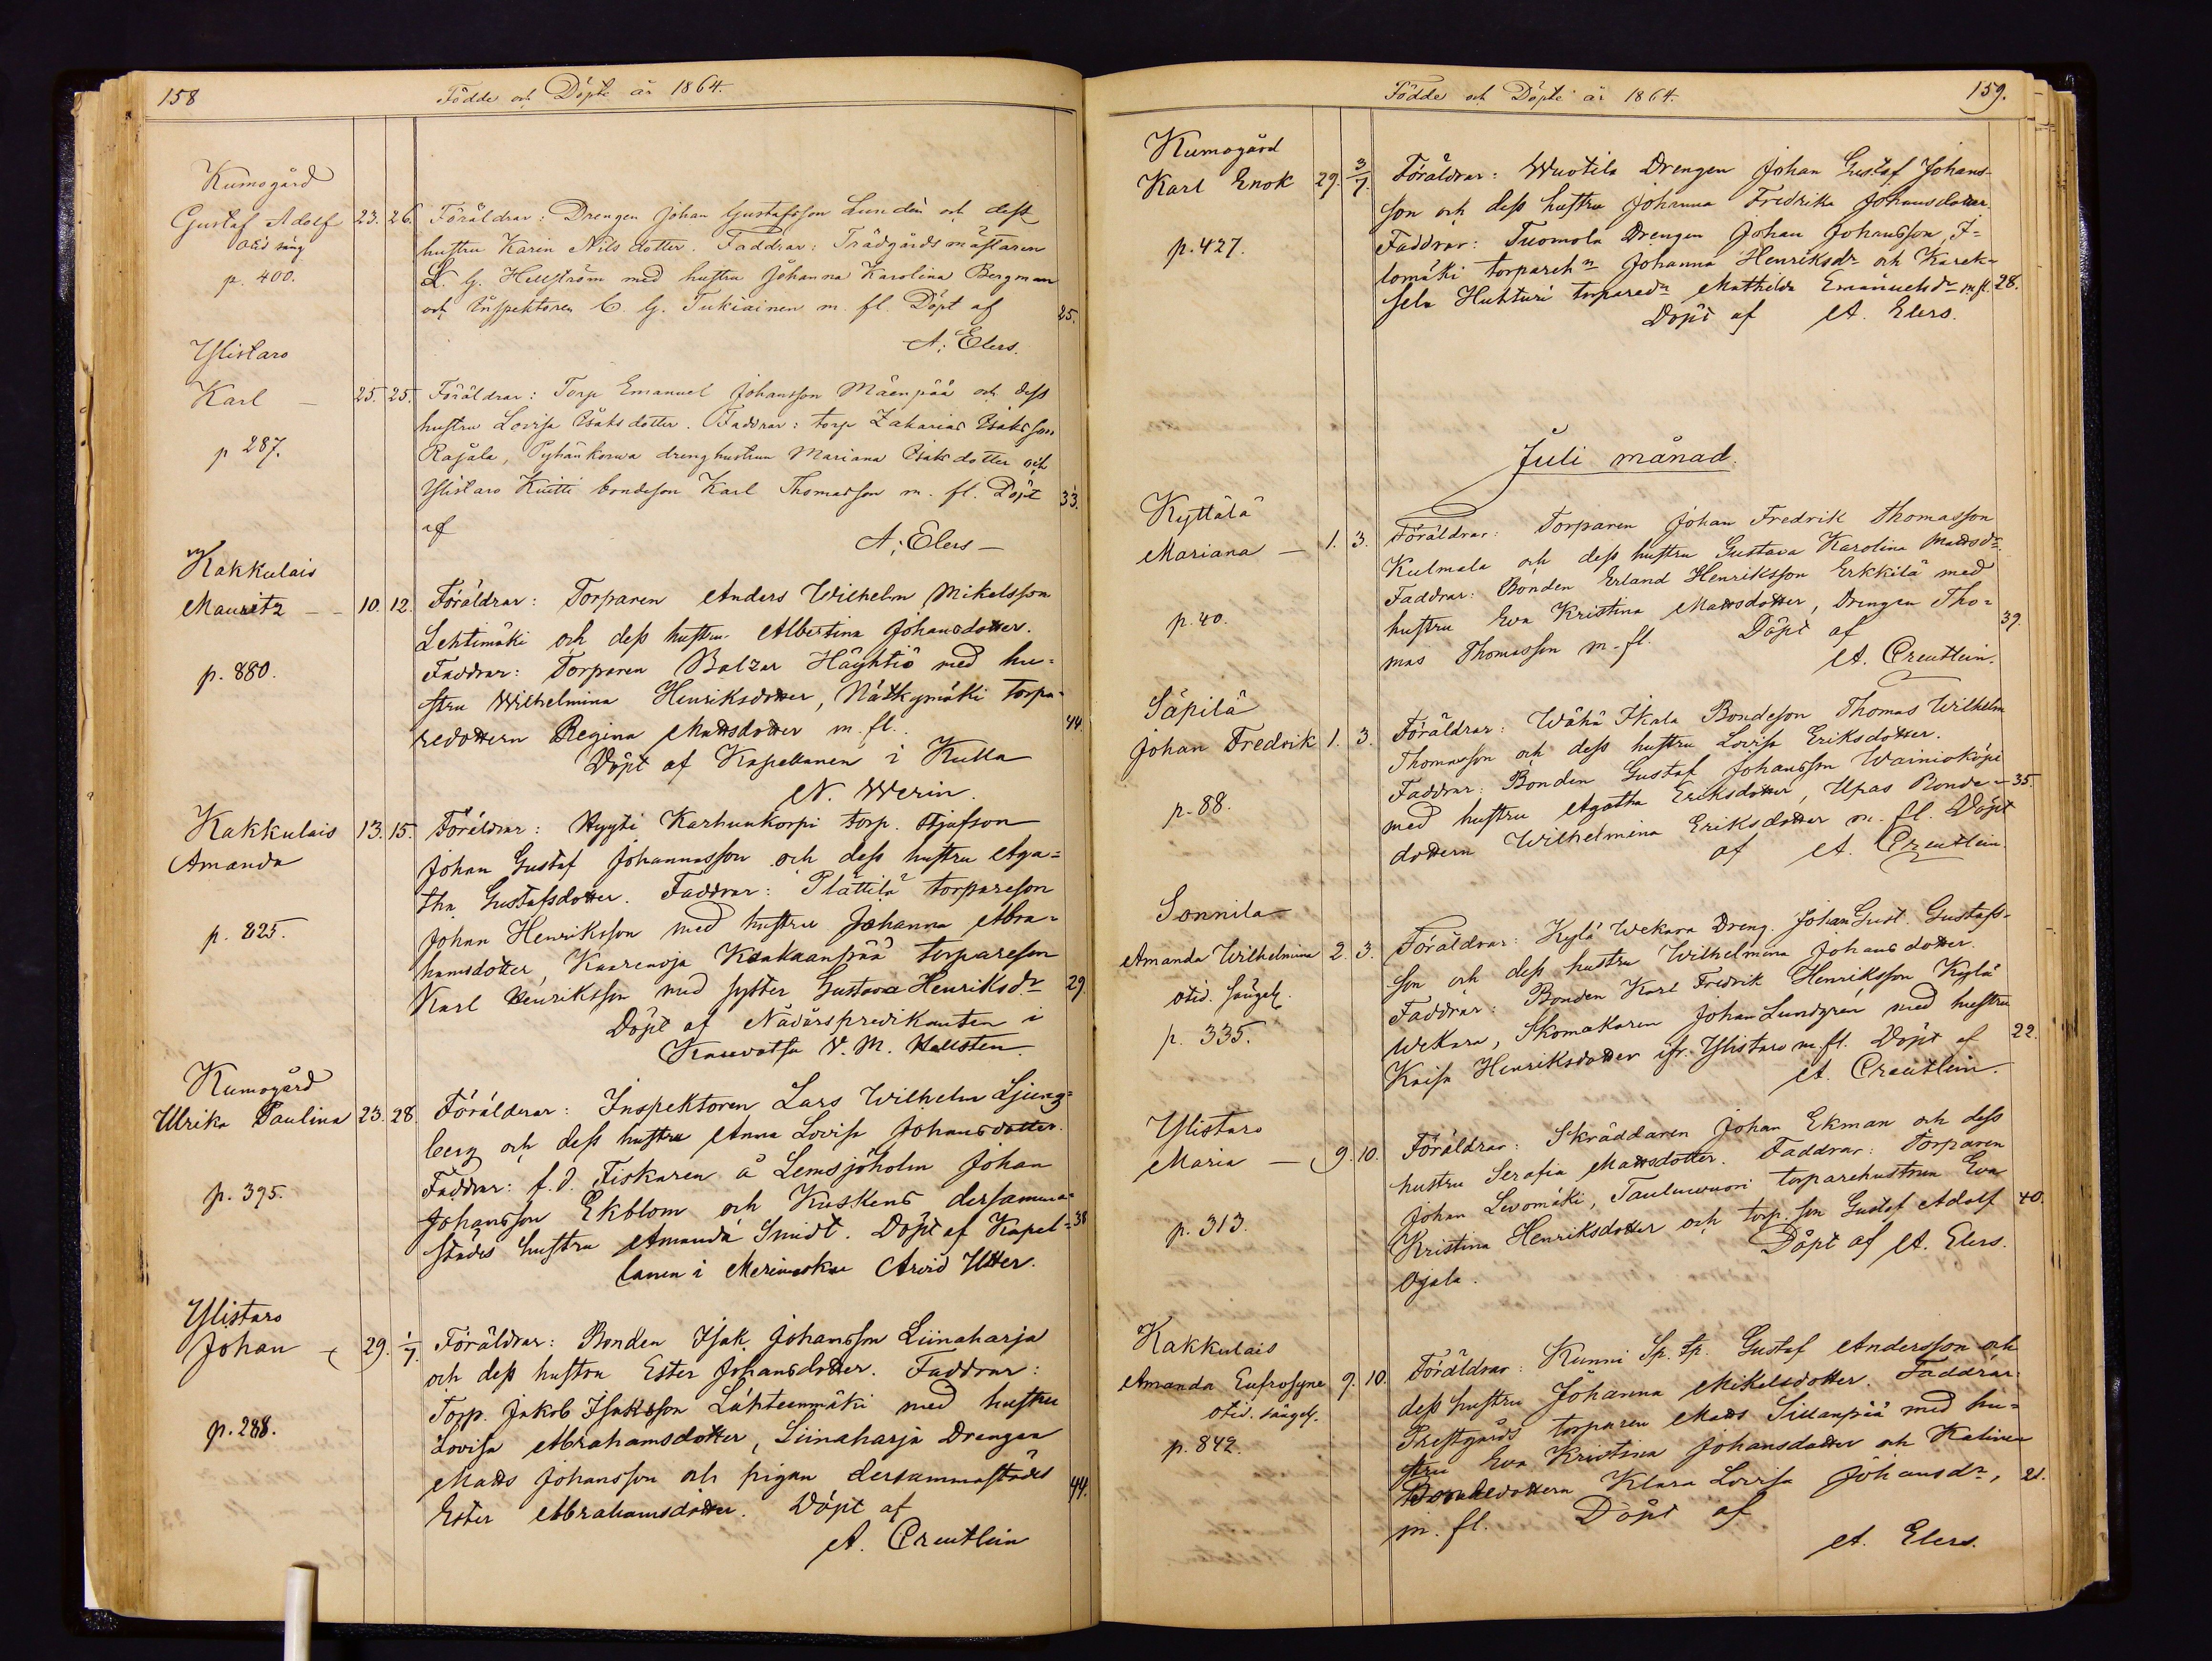 158
Födde och Döpte år 1864.
Kumogård
Gustaf Adolf 23. 26. Föräldrar: Drengen Johan Gustafsson Lundén och dess
p. 400.
hustru Karin Nilsdotter. Faddrar: Trädgårdsmästaren
K. G. Hellström med hustru Johanna Karolina Bergman
och Inspektoren C. G. Tukiainen m. fl. Döpt af 25.
A. Elers.
Ylistaro
Karl — 25. 25. Föräldrar: Torp Emanuel Johansson Mäenpää och dess
p 287.
hustru Lovisa Isaksdotter. Faddrar: torp Zakarias Isaksson
Rajala, Pyhänkorwa drenghustrun Mariana Isaksdotter och
Ylistaro Kuitti bondeson Karl Thomasson m. fl. Döpt 33.
af
A. Elers —
Kakkulais
Mauritz — 10. 12. Föräldrar: Torparen Anders Wilhelm Mikelsson
p. 880.
Lehtimäki och dess hustru Albertina Johansdotter.
Faddrar: Torparen Balzar Häyhtiö med hu=
stru Wilhelmina Henriksdotter, Nätkymäki torpa=
redottern Regina Mattsdotter m. fl. 44.
Döpt af Kapellanen i Kulla
N. Werin.
Kakkulais 13. 15. Föräldrar: Hyyti Karhunkorpi torp.
Amanda
p. 825.
Johan Gustaf Johannasson och dess hustru Aga=
tha Gustafsdotter. Faddrar: Plättilä torpareson
Johan Henriksson med hustru Johanna Abra=
hamsdotter, Kaarenoja torpareson
Karl Henriksson med syster Gustava Henriksdr 29.
Döpt af Nådårspredikanten i
Kauvatsa V. M. Hallsten.
Kumogård
Ulrika Paulina 23. 28. Föräldrar: Inspektoren Lars Wilhelm Ljung=
p. 395.
berg och dess hustru Anna Lovisa Johansdotter.
Faddrar: f.d. Fiskaren å Lemsjöholm Johan
Johansson Ekblom och Kuskens dersamma=
städes hustru Amanda Smidt. Döpt af Kapel= 38
lanen i Merimasku Arvid Utter.
Ylistaro
Johan — 29. 1/7. Föräldrar: Bonden Isak Johansson Liinaharja
p. 288.
och dess hustru Ester Johansdotter. Faddrar:
Torp. Jakob Isaksson Lähteenmäki med hustru
Lovisa Abrahamsdotter, Liinaharja Drengen
Matts Johansson och pigan dersammastädes
Ester Abrahamsdotter. Döpt af 44.
A. Creutlein
Födde och Döpte år 1864.
159.
Kumogård
Karl Enok 29. 3/7. Föräldrar: Wuotila Drengen Johan Gustaf Johans-
p. 427.
son och dess hustru Johanna Fredrika Johansdotter
Faddrar: Tuomola Drengen Johan Johansson, I=
lomäki torpareh:n Johanna Henriksdr och Karek=
sela Huhturi torpared:n Mathilda Emanuelsdr m fl. 28.
Döpt af A. Elers.
Juli månad.
Kyttälä
Mariana — 1. 3. Föräldrar: Torparen Johan Fredrik Thomasson
p. 40.
Kulmala och dess hustru Gustava Karolina Mattsdr
Faddrar: Bonden Erland Henriksson Erkkilä med
hustru Eva Kristina Mattsdotter, Drengen Tho=
mas Thomasson m. fl. Döpt af 39.
A. Creutlein.
Säpilä
Johan Fredrik 1. 3. Föräldrar: Wähä Ikala Bondeson Thomas Wilhelm
p. 88.
Thomasson och dess hustru Lovisa Eriksdotter.
Faddrar: Bonden Gustaf Johansson Wainioköpi
med hustru Agatha Eriksdotter, Upas Bonde= 35.
dottern Wilhelmina Eriksdotter m. fl. Döpt
af A. Creutlein.
Sonnila
Amanda Wilhelmina 2. 3. Föräldrar: Kylä Wekara Dreng. Johan Gust. Gustafs-
p. 335.
son och dess hustru Wilhelmina Johansdotter.
Faddrar: Bonden Karl Fredrik Henriksson Kylä
Wekara, Skomakaren Johan Lundgrén med hustru
Kaisa Henriksdotter ifr. Ylistaro m fl. Döpt af 22.
A. Creutlein.
Ylistaro
Maria — 9. 10. Föräldrar: Skräddaren Johan Ekman och dess
p. 313.
hustru Serafia Mattsdotter. Faddrar: Torparen
Johan Levomäki, Tauluwuori torparehustrun Eva
Kristina Henriksdotter och torp. son Gustaf Adolf 40.
Ojala. Döpt af A. Elers.
Kakkulais
Amanda Eufrosyne 9. 10. Föräldrar: Kunni Sp. tp. Gustaf Andersson och
p. 842.
dess hustru Johanna Mikelsdotter. Faddrar:
Prestgårds torparen Matts Sillanpää med hu=
stru Eva Kristina Johansdotter och Kalinen
Bondedottern Klara Lovisa Johansdr, 21.
m. fl. Döpt af
A. Elers.